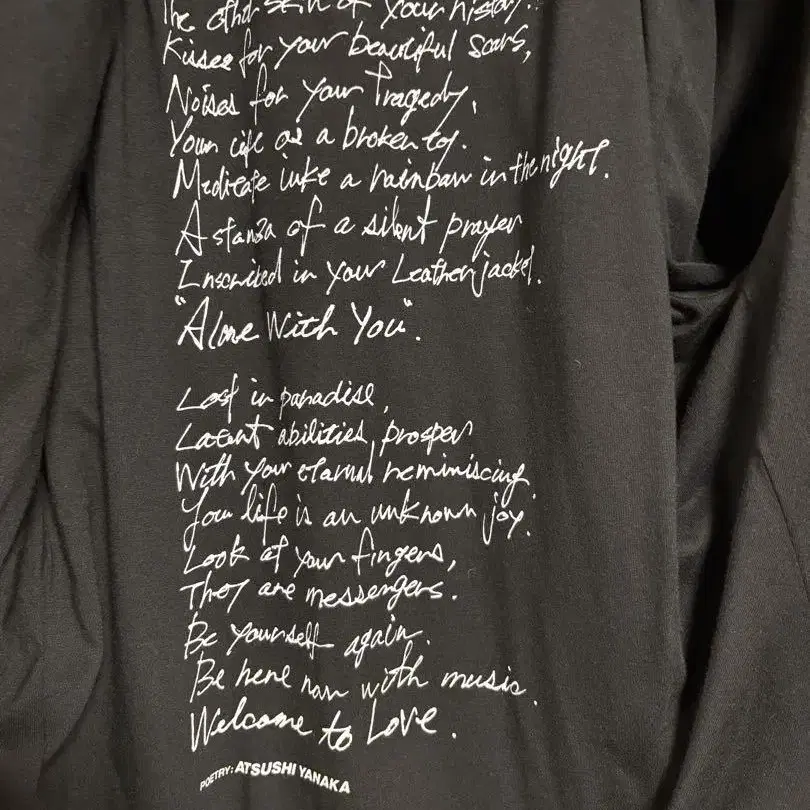 The other skin of your history.
Kisses for your beautiful scars,
Noises for your Tragedy,
Your life as a broken toy.
Meditate like a rainbow in the night.
A stanza of a silent prayer
Inscribed in your Leather jacket.
"Alone With You".
Lost in paradise,
Latent abilities prosper
With your eternal reminiscing
Your life is an unknown joy.
Look at your fingers,
They are messengers.
Be yourself again.
Be here now with music.
Welcome to Love.
POETRY: ATSUSHI YANAKA